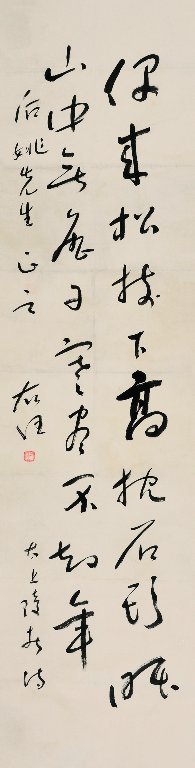 偶来松樹下高枕石頭眠
山中無曆日寒盡不知年
后姚先生正之 右任
太上隱者詩